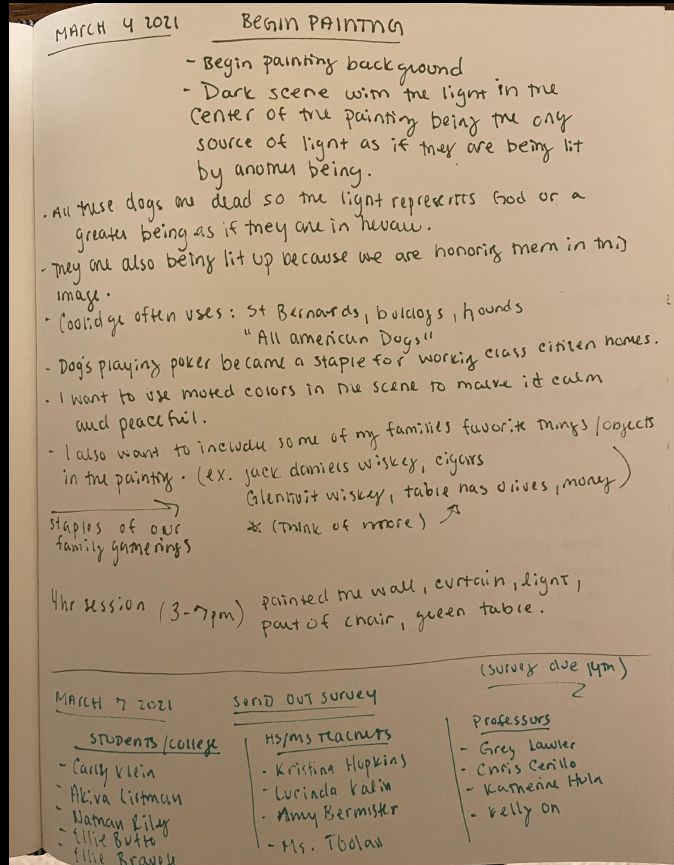 MARCH 4 2021
BEGIN PAINTING
- Begin painting background
- Dark scene with the light in the
center of the painting being the ony
source of light as if they are being lit
by another being.
- All these dogs are dead so the light represents God or a
greater being as if they are in hevan.
- They are also being lit up because we are honoring them in this
image.
- Coolidge often uses: St Bernards, bulldogs, hounds
"All american Dogs"
- Dog's playing poker became a staple for working class citizen homes.
- I want to use muted colors in the scene to make it calm
and peacefull.
- I also want to include some of my families favorite things/objects
in the painting. (ex. jack daniels wiskey, cigars
Glenlivit wiskey, table has olives, money)
* (think of more)
staples of our
family gatherings
4hr session (3-7pm) painted the wall, curtain, light,
part of chair, green table.
(survey due
MARCH 7 2021
SEND OUT SURVEY
STUDENTS/COLLEGE
- Carly Klein
- Akiva
- Nathan Riley
- Ellie
- Ellie
HS/MS TEACHERS
- Kristina Hopkins
- Lucinda
- Amy Bermister
- Ms.
Professors
- Greg Lawler
- Chris Cerillo
- Katherine
- Kelly